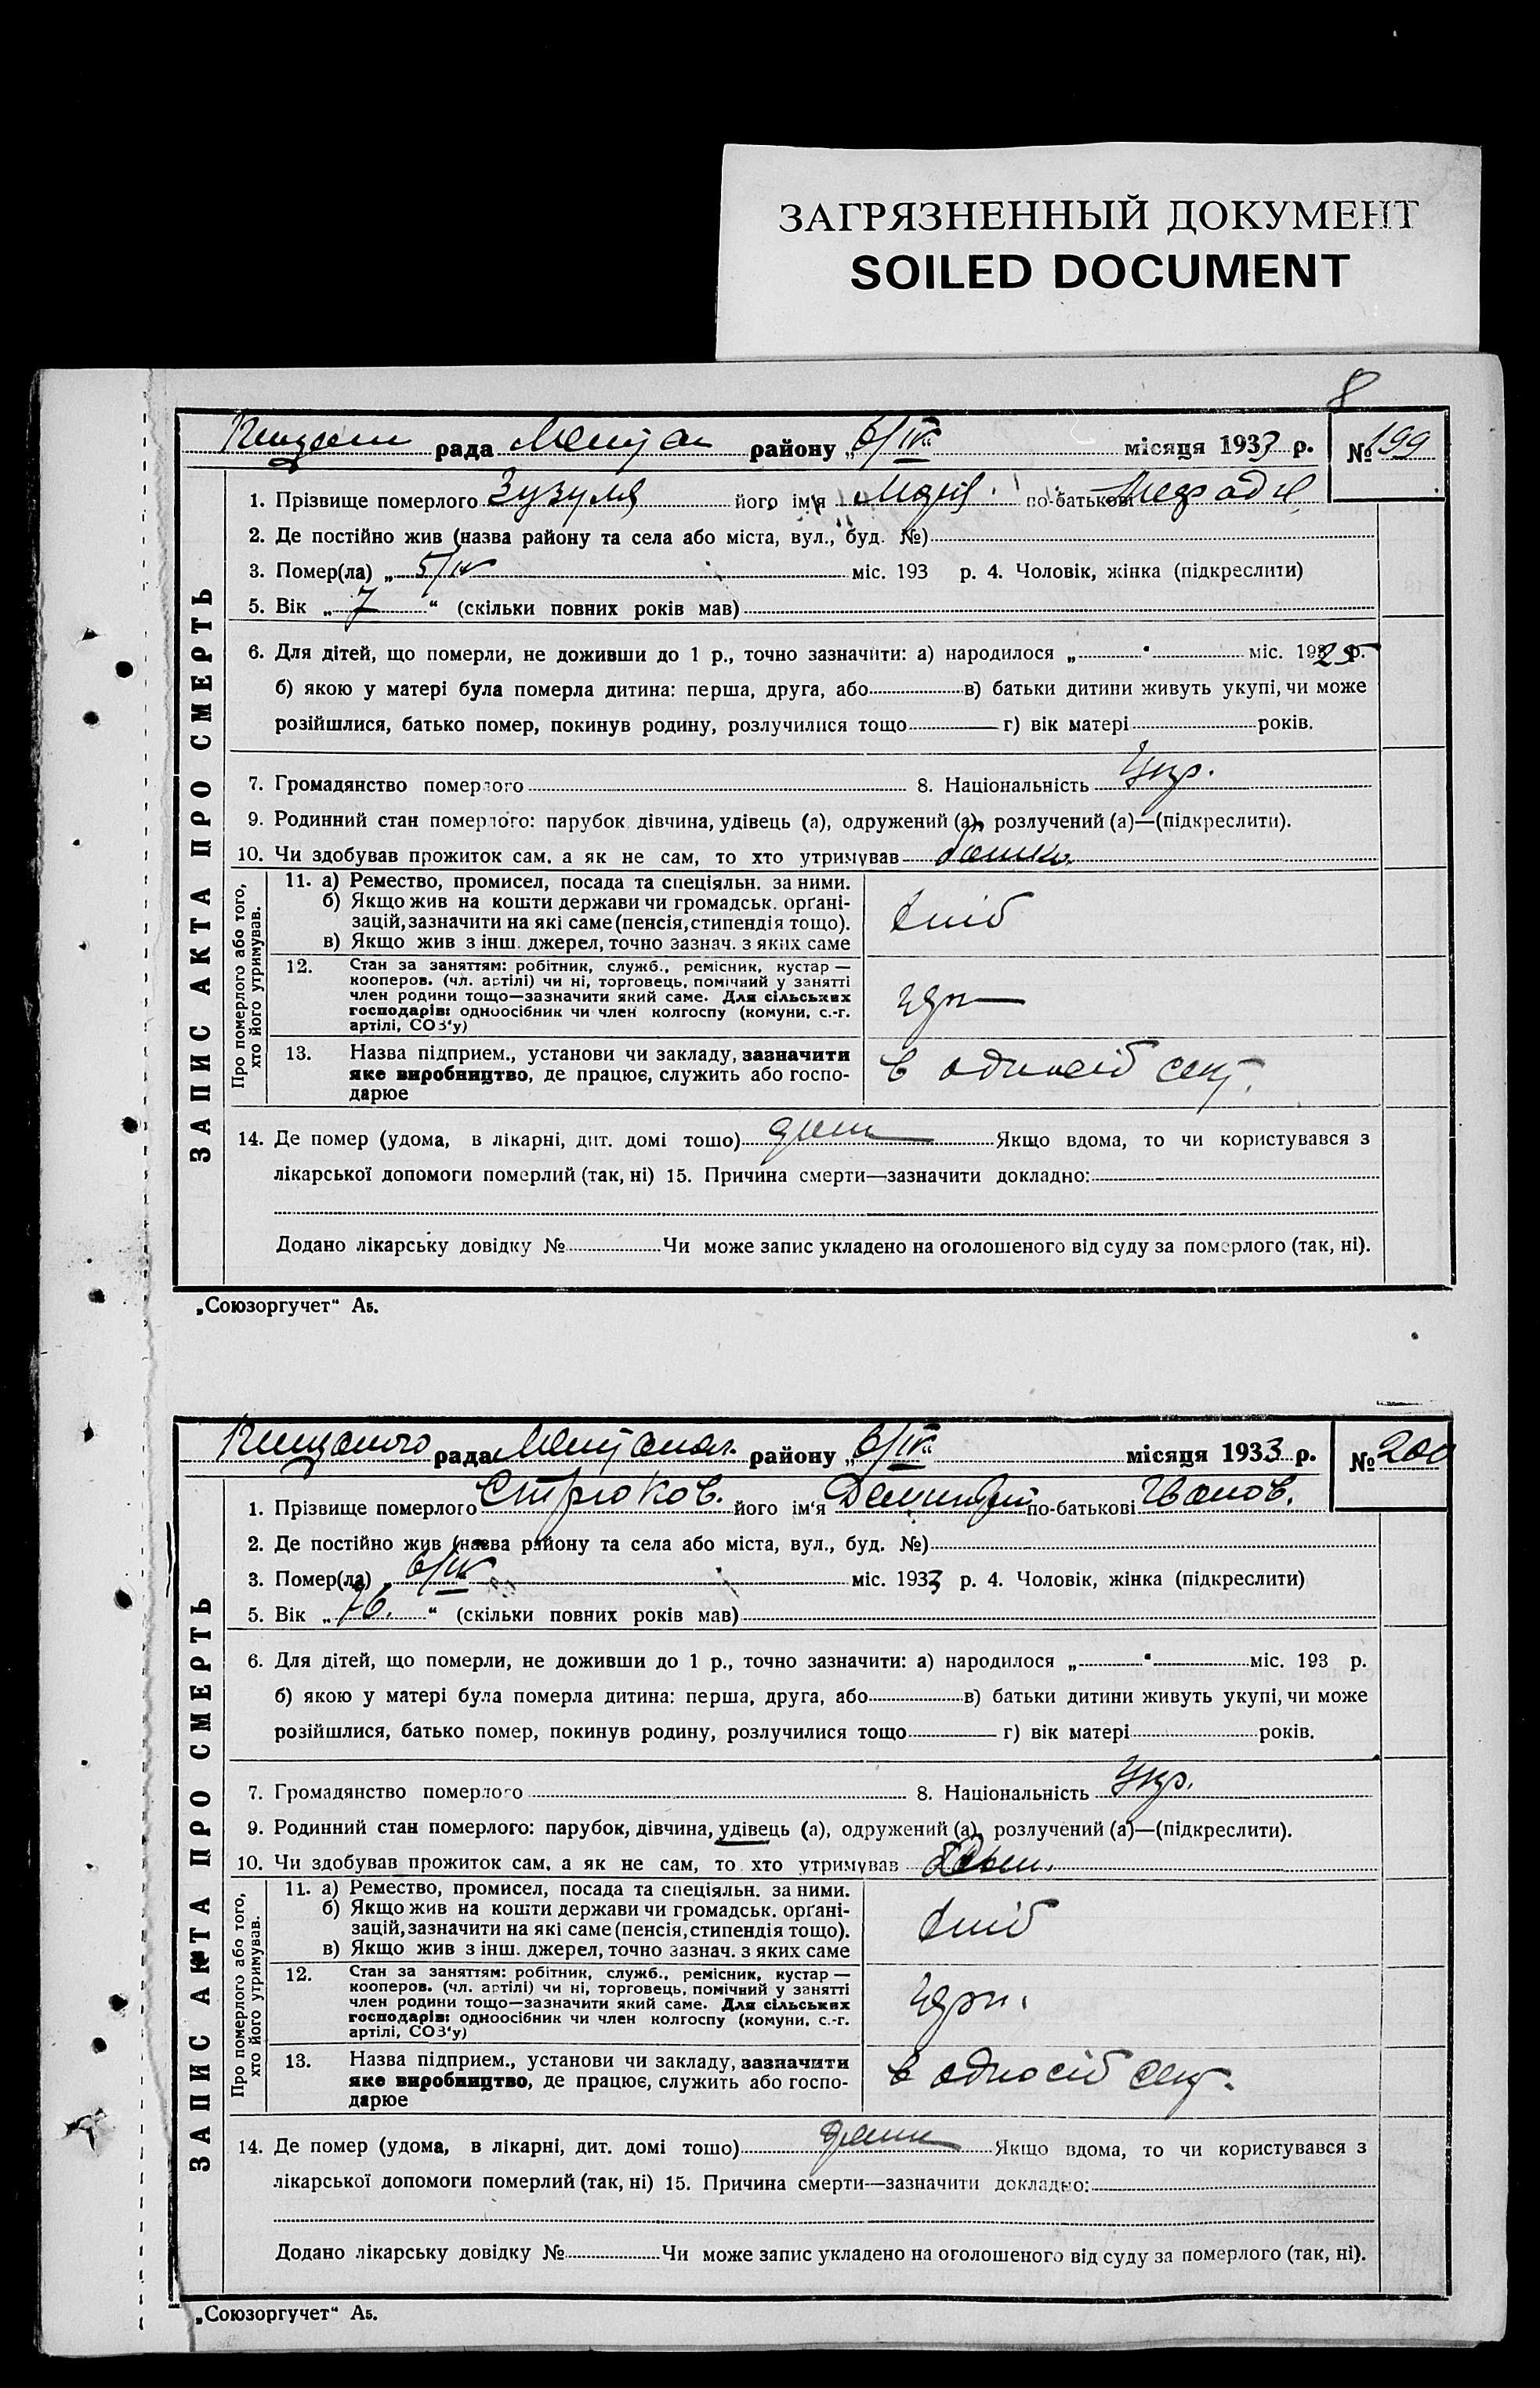 ЗАГРЯЗНЕННЫЙ ДОКУМЕНТ
SOILED DOCUMENT
8
рада района „6/IV“ місяця 1933 р. № 199
ЗАПИС АКТА ПРО СМЕРТЬ
1. Прізвище померлого Зузуля його ім'я по-батькові
2. Де постійно жив (назва району та села або міста, вул., буд. №)
3. Помер(ла) „ 5/IV міс. 193 р. 4. Чоловік, жінка (підкреслити)
5. Вік „ 7 “ (скільки повних років мав)
6. Для дітей, що померли, не доживши до 1 р., точно зазначити: а) народилося „ “ міс. 1925 р.
б) якою у матері була померла дитина: перша, друга, або в) батьки дитини живуть укупі, чи може
розійшлися, батько помер, покинув родину, розлучилися тощо г) вік матері років.
7. Громадянство померлого 8. Національність Укр.
9. Родинний стан померлого: парубок, дівчина, удівець (а), одружений (а), розлучений (а)—(підкреслити).
10. Чи здобував прожиток сам, а як не сам, то хто утримував
Про померлого або того, хто його утримував.
11. а) Ремество, промисел, посада та спеціяльн. за ними.
б) Якщо жив на кошти держави чи громадськ. орґані-
зацій, зазначити на які саме (пенсія, стипендія тощо).
в) Якщо жив з інш. джерел, точно зазнач. з яких саме
12. Стан за заняттям: робітник, служб., ремісник, кустар —
кооперов. (чл. артілі) чи ні, торговець, помічний у занятті
член родини тощо—зазначити який саме. Для сільських
господарів: одноосібник чи член колгоспу (комуни, с.-г.
артілі, СОЗ'у)
13. Назва підприєм., установи чи закладу, зазначити
яке виробництво, де працює, служить або госпо- в односіб сект.
дарює
14. Де помер (удома, в лікарні, дит. домі тощо) Якщо вдома, то чи користувався з
лікарської допомоги померлий (так, ні) 15. Причина смерти—зазначити докладно:
Додано лікарську довідку № Чи може запис укладено на оголошеного від суду за померлого (так, ні).
„Союзоргучет“ Аб.
рада району „6/IV“ місяця 1933 р. № 200
ЗАПИС АКТА ПРО СМЕРТЬ
1. Прізвище померлого Стрюков. його ім'я по-батькові Іванов.
2. Де постійно жив (назва району та села або міста, вул., буд. №)
3. Помер(ла) „ 6/IV міс. 1933 р. 4. Чоловік, жінка (підкреслити)
5. Вік „ 76. “ (скільки повних років мав)
6. Для дітей, що померли, не доживши до 1 р., точно зазначити: а) народилося „ “ міс. 193 р.
б) якою у матері була померла дитина: перша, друга, або в) батьки дитини живуть укупі, чи може
розійшлися, батько помер, покинув родину, розлучилися тощо г) вік матері років.
7. Громадянство померлого 8. Національність Укр.
9. Родинний стан померлого: парубок, дівчина, удівець (а), одружений (а), розлучений (а)—(підкреслити).
10. Чи здобував прожиток сам, а як не сам, то хто утримував
Про померлого або того, хто його утримував.
11. а) Ремество, промисел, посада та спеціяльн. за ними.
б) Якщо жив на кошти держави чи громадськ. орґані-
зацій, зазначити на які саме (пенсія, стипендія тощо).
в) Якщо жив з інш. джерел, точно зазнач. з яких саме
12. Стан за заняттям: робітник, служб., ремісник, кустар —
кооперов. (чл. артілі) чи ні, торговець, помічний у занятті
член родини тощо—зазначити який саме. Для сільських
господарів: одноосібник чи член колгоспу (комуни, с.-г.
артілі, СОЗ'у)
13. Назва підприєм., установи чи закладу, зазначити
яке виробництво, де працює, служить або госпо- в односіб сект.
дарює
14. Де помер (удома, в лікарні, дит. домі тощо) Якщо вдома, то чи користувався з
лікарської допомоги померлий (так, ні) 15. Причина смерти—зазначити докладно:
Додано лікарську довідку № Чи може запис укладено на оголошеного від суду за померлого (так, ні).
„Союзоргучет“ Аб.